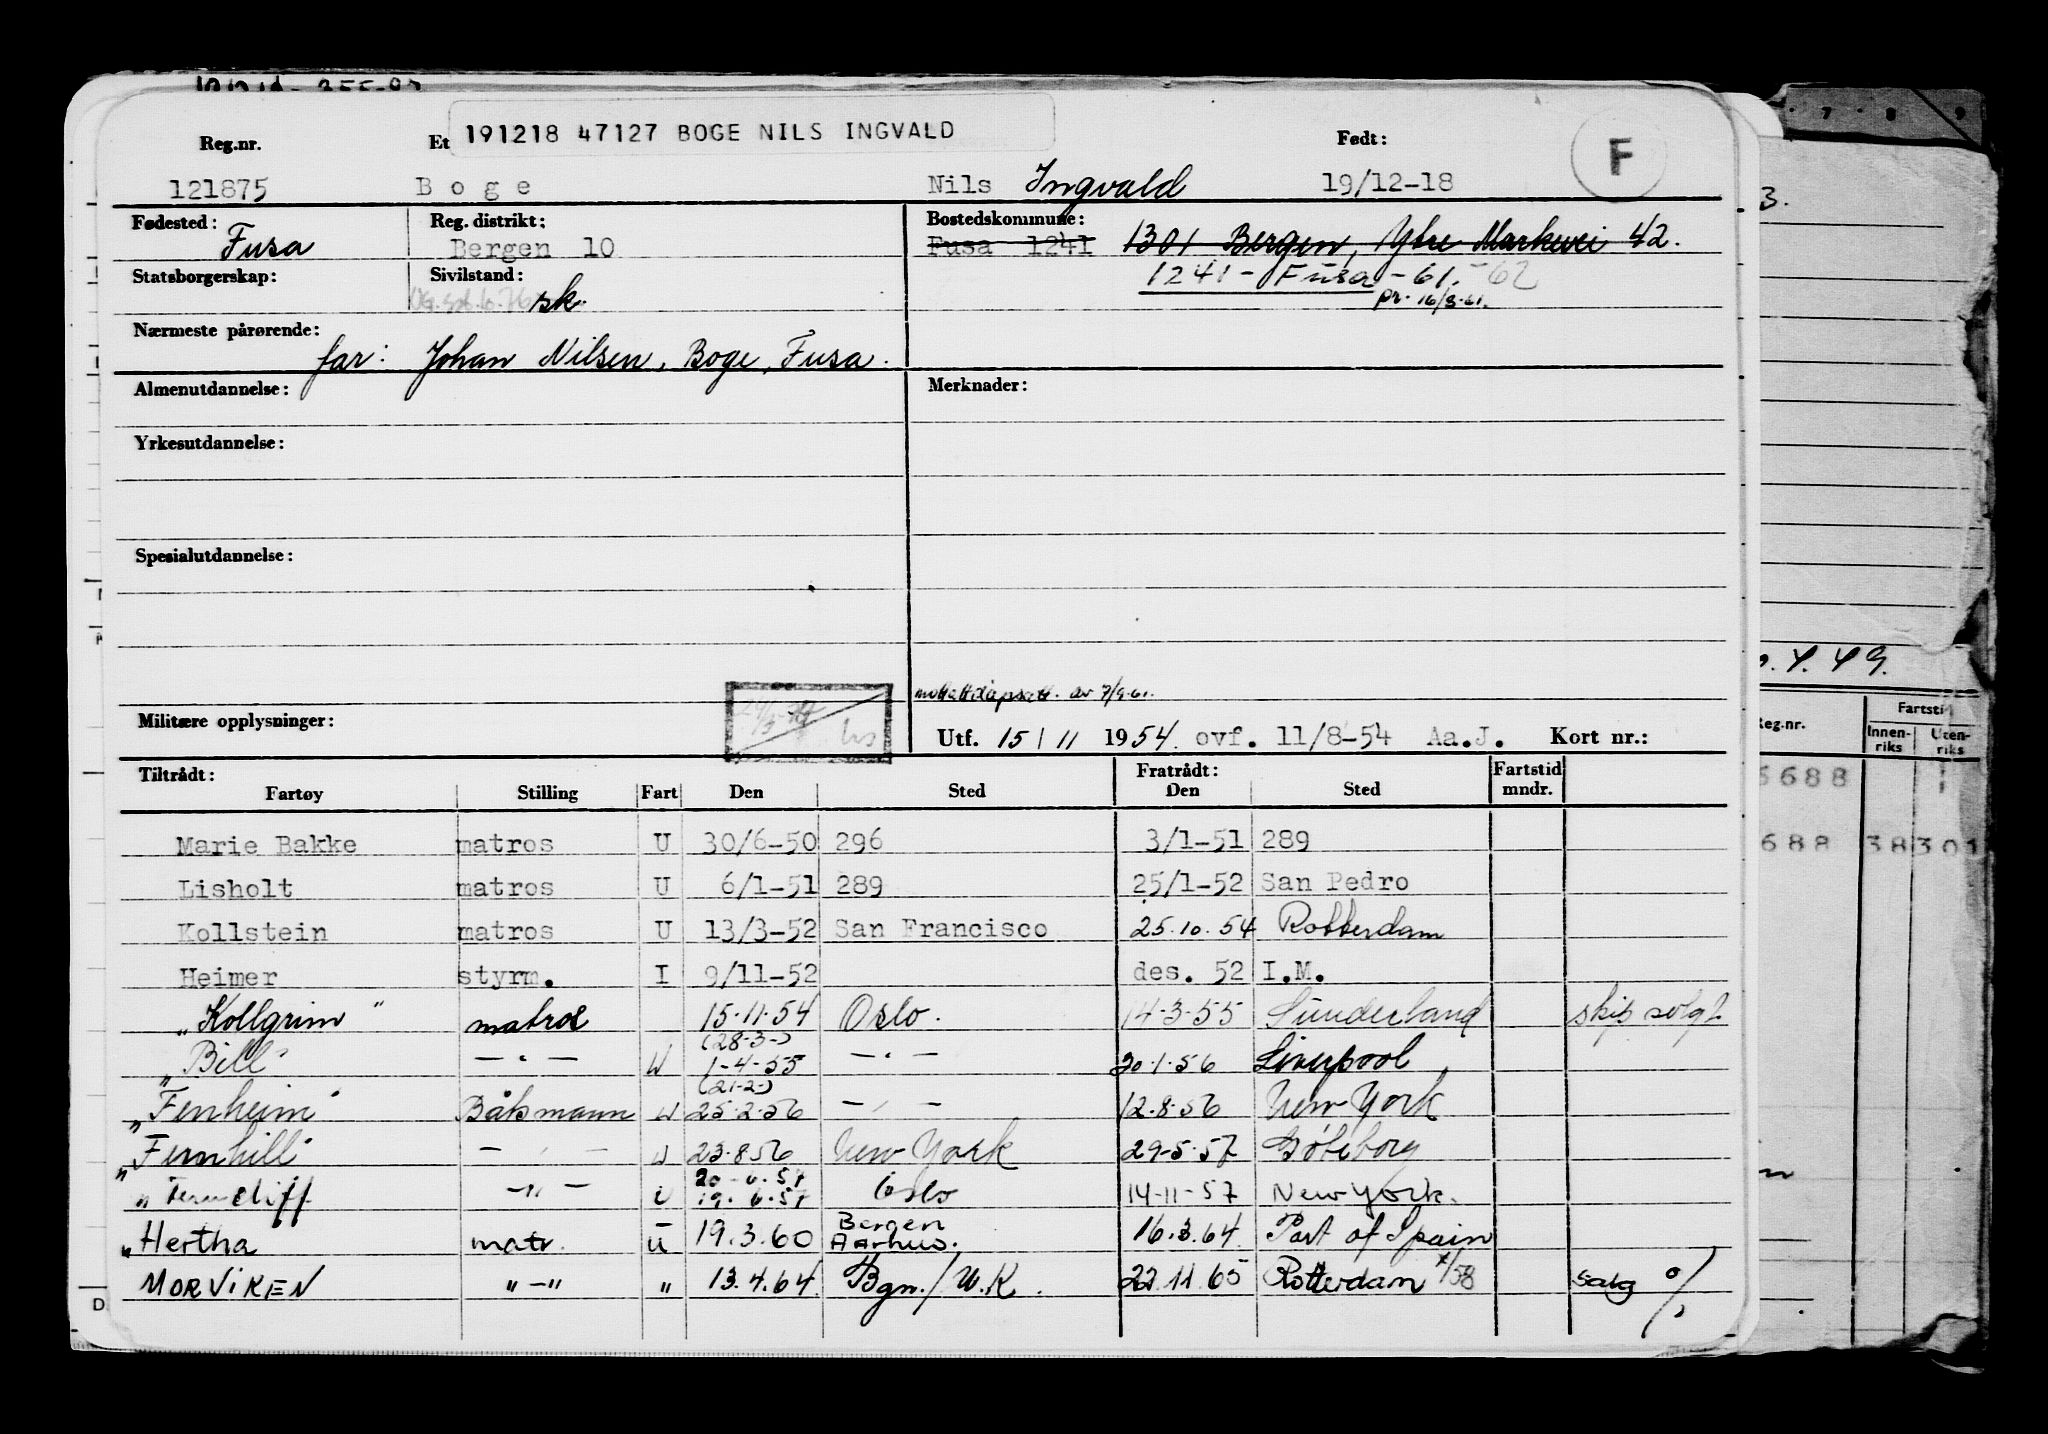 191218 47127 BOGE NILS INGVALD
Reg.nr. Et Født: F
121875 Boge Nils Ingvald 19/12-18
Fødested: Reg. distrikt: Bostedskommune:
Fusa Bergen 10 Fusa 1241 1301 Bergen, Ytre Markevei 42.
Statsborgerskap: Sivilstand: 1241 - Fusa - 61. - 62
sk. pr. 16/3-61.
Nærmeste pårørende:
far: Johan Nilsen, Boge, Fusa.
Almenutdannelse: Merknader:
Yrkesutdannelse:
Spesialutdannelse:
av 7/9-61.
Militære opplysninger: Utf. 15/11 1954. ovf. 11/8-54 Aa.J. Kort nr.:
Tiltrådt: Fratrådt: Fartstid
Fartøy Stilling Fart Den Sted Den Sted mndr.
Marie Bakke matros U 30/6-50 296 3/1-51 289
Lisholt matros U 6/1-51 289 25/1-52 San Pedro
Kollstein matros U 13/3-52 San Francisco 25.10.54 Rotterdam
Heimer styrm. I 9/11-52 des. 52 I.M.
"Kollgrim" matros 15.11.54 Oslo. 14-3-55 Sunderland skip solgt
(28-3-)
"Bill" — " — U 1-4-55 — " — 30.1.56 Liverpool
(21-2-)
"Fenheim" Båtsmann U 25.2.56 — " — 12.8.56 New York
"Fernhill" — " — U 23.8.56 New York 29-5-57 Gøteborg
"Ferncliff — " — U 19.6.57 Oslo 14-11-57 New York.
"Hertha matr. U 19.3.60 Bergen Aarhus. 16.3.64. Port of Spain
MORVIKEN "—" " 13.4.64. Bgn./U.K. 22.11.65 Rotterdam /58 salg %
3.
.4.49.
Reg.nr. Fartsti
Innen-riks Uten-riks
688
688 38 301
7 8 9
D